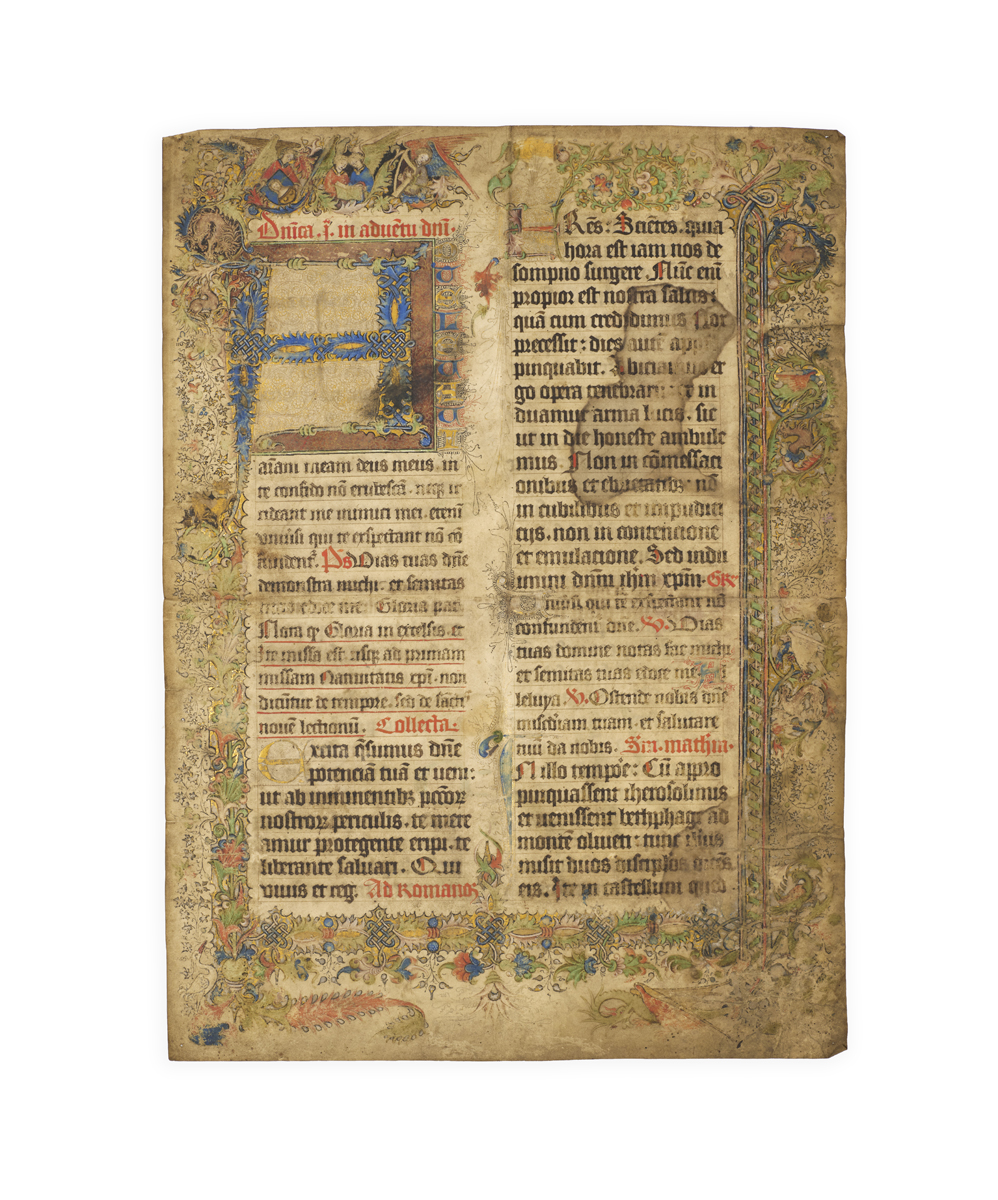 Dñica. i. in aduētu dñi.
A
D TE LEUAUI
aīam meam deus meus in
te confido nō erubescā. neqꝫ ir
rideant me inimici mei. etenī
uniūsi qui te exspectant nō cō
fundent᷑. Ps Vias tuas dñe
demonstra michi. et semitas
tuas edoce me. Gloria pat
Nota qꝫ Gloria in excelsis. et
Ite missa est. usqꝫ ad primam
missam Natiuitatis xp̄i. non
dicūtur de tempore. sed de sāctꝭ
nouē lectionū. Collecta.
Excita q̄sumus dñe
potenciā tuā et ueni:
ut ab imminentibꝫ pccōꝝ
nostroꝝ periculis. te mere
amur protegente eripi. te
liberante saluari. Q.ui
uiuis et reg. Ad Romanos
FRēs: Scientes. quia
hora est iam nos de
sompno surgere. Nūc eni
propior est nostra salus:
quā cum credidimus Nox
precessit: dies autē app
pinquabit. Abiciamus er
go opera tenebrarū: et in
duamur arma lucis. sic
ut in die honeste ambule
mus. Non in cōmessaci
onibus et ebrietatibꝫ. nō
in cubilibus et impudici
cijs. non in contencione
et emulacione. Sed indu
imini dñm ihm xp̄m. Gr̄
niūsi qui te exspectant nō
confundent dñe. V. Vias
tuas domine notas fac michi
et semitas tuas edoce me
leluya V. Ostende nobis dñe
misc̄diam tuam. et salutare
tuū da nobis. Sm. mathm.
N illo tempoē: Cū appro
pinquassent iherosolimis
et uenissent bethphage ad
montē oliueti: tunc ih̄us
misit duos discip̄los dicēs
eis. Ite in castellum quod